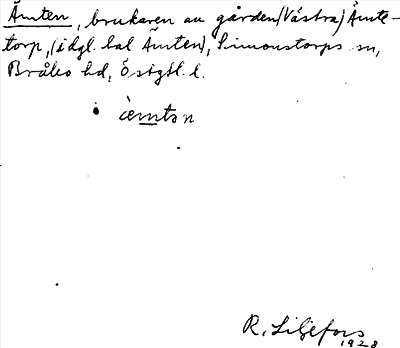 Ämten, brukaren av gården (Västra) Ämte-
torp, (i dgl. tal Ämten), Simonstorps sn,
Bråbo hd, Östgtl. l.
R. Liljefors
1928